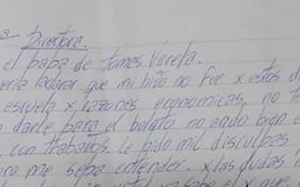 Directora.
el papa de tomas Varela.
aclarar que mi hijo no fue x estos d
escuela x razones economicas, no t
darle para el boleto no ando bien e
con trabajos. le pido mil disculpas
me sepa entender. x las dudas